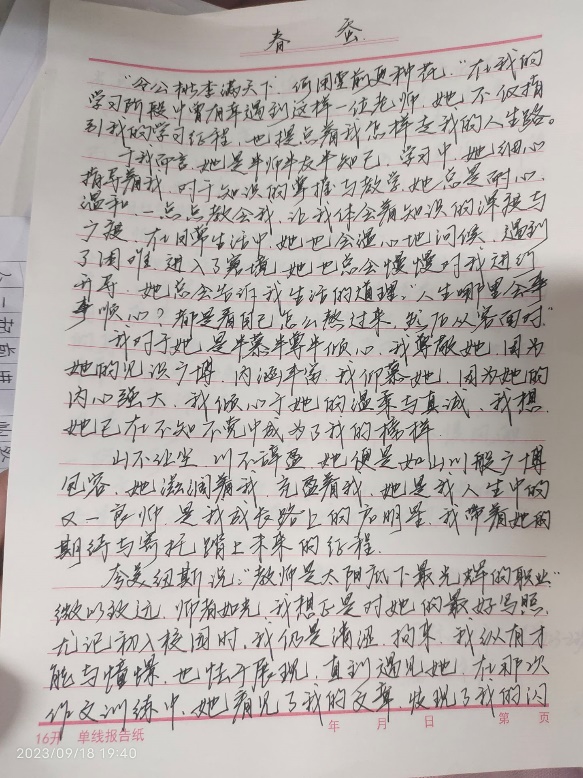 春蚕
“令公桃李满天下，何用堂前更种花。”在我的
学习阶段中曾有幸遇到这样一位老师，她不仅指
引我的学习征程，也提点着我怎样走我的人生路。
于我而言，她是半师半友半知己，学习中，她细心
指导着我，对于知识的掌握与教学，她总是耐心、
温和，一点点教会我，让我体会着知识的深授与
广授，在日常生活中，她也会温心地问候，遇到
了困难，进入了窘境，她也总会慢慢对我进行
开导，她总会告诉我生活的道理。“人生哪里会事
事顺心？都是看自己怎么熬过来，然后从容面对。”
我对于她，是半慕半尊半倾心，我尊敬她，因为
她的见识广博，内涵丰富，我仰慕她，因为她的
内心强大，我倾心于她的温柔与真诚，我想，
她已在不知不觉中成为了我的榜样。
山不让尘，川不辞盈，她便是如山川般广博
包容，她滋润着我，充盈着我，她是我人生中的
又一良师，是我成长路上的启明星，我带着她的
期待与寄托踏上未来的征程。
夸美纽斯说：“教师是太阳底下最光辉的职业”
微以致远，师者如光，我想正是对她的最好写照，
尤记初入校园时，我仍是清涩、拘束，我纵有才
能与憧憬，也怯于展现，直到遇见她，在那次
作文训练中，她看见了我的文章，发现了我的闪
年 月 日 第 页
16开 单线报告纸
2023/09/18 19:40